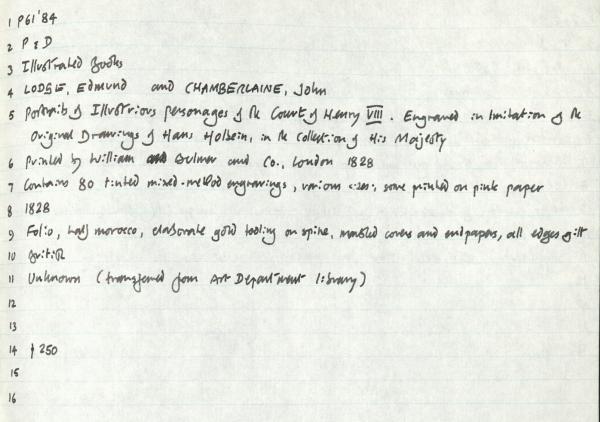 1 P61'84
2 P & D
3 Illustrated Books
4 LODGE, Edmund and CHAMBERLAINE, John
5 Portraits of Illustrious personages of the Court of Henry VIII. Engraved in Imitation of the
Original Drawings of Hans Holbein, in the Collection of His Majesty
6 Printed by William Bulmer and Co., London 1828
7 Contains 80 tinted mixed-method engravings, various sizes, some printed on pink paper
8 1828
9 Folio, half morocco, elaborate gold tooling on spine, marbled covers and endpapers, all edges gilt
10 British
11 Unknown (transferred from Art Department library)
12
13
14 250
15
16